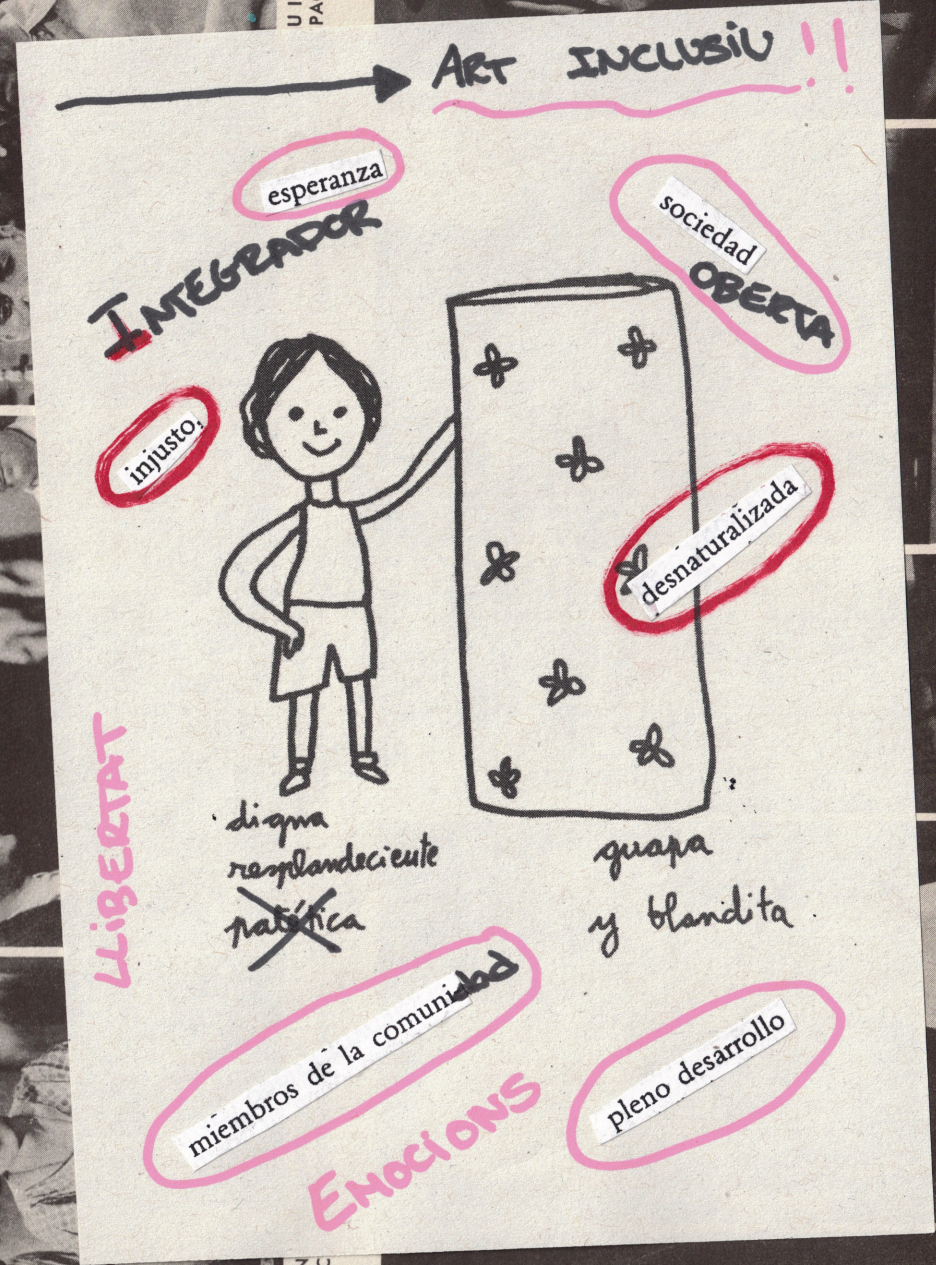 ART INCLUSIU !!
esperanza
INTEGRADOR
sociedad
OBERTA
injusto,
desnaturalizada
LLIBERTAT
digna
resplandeciente
patética
guapa
y blandita
miembros de la comunidad
pleno desarrollo
EMOCIONS